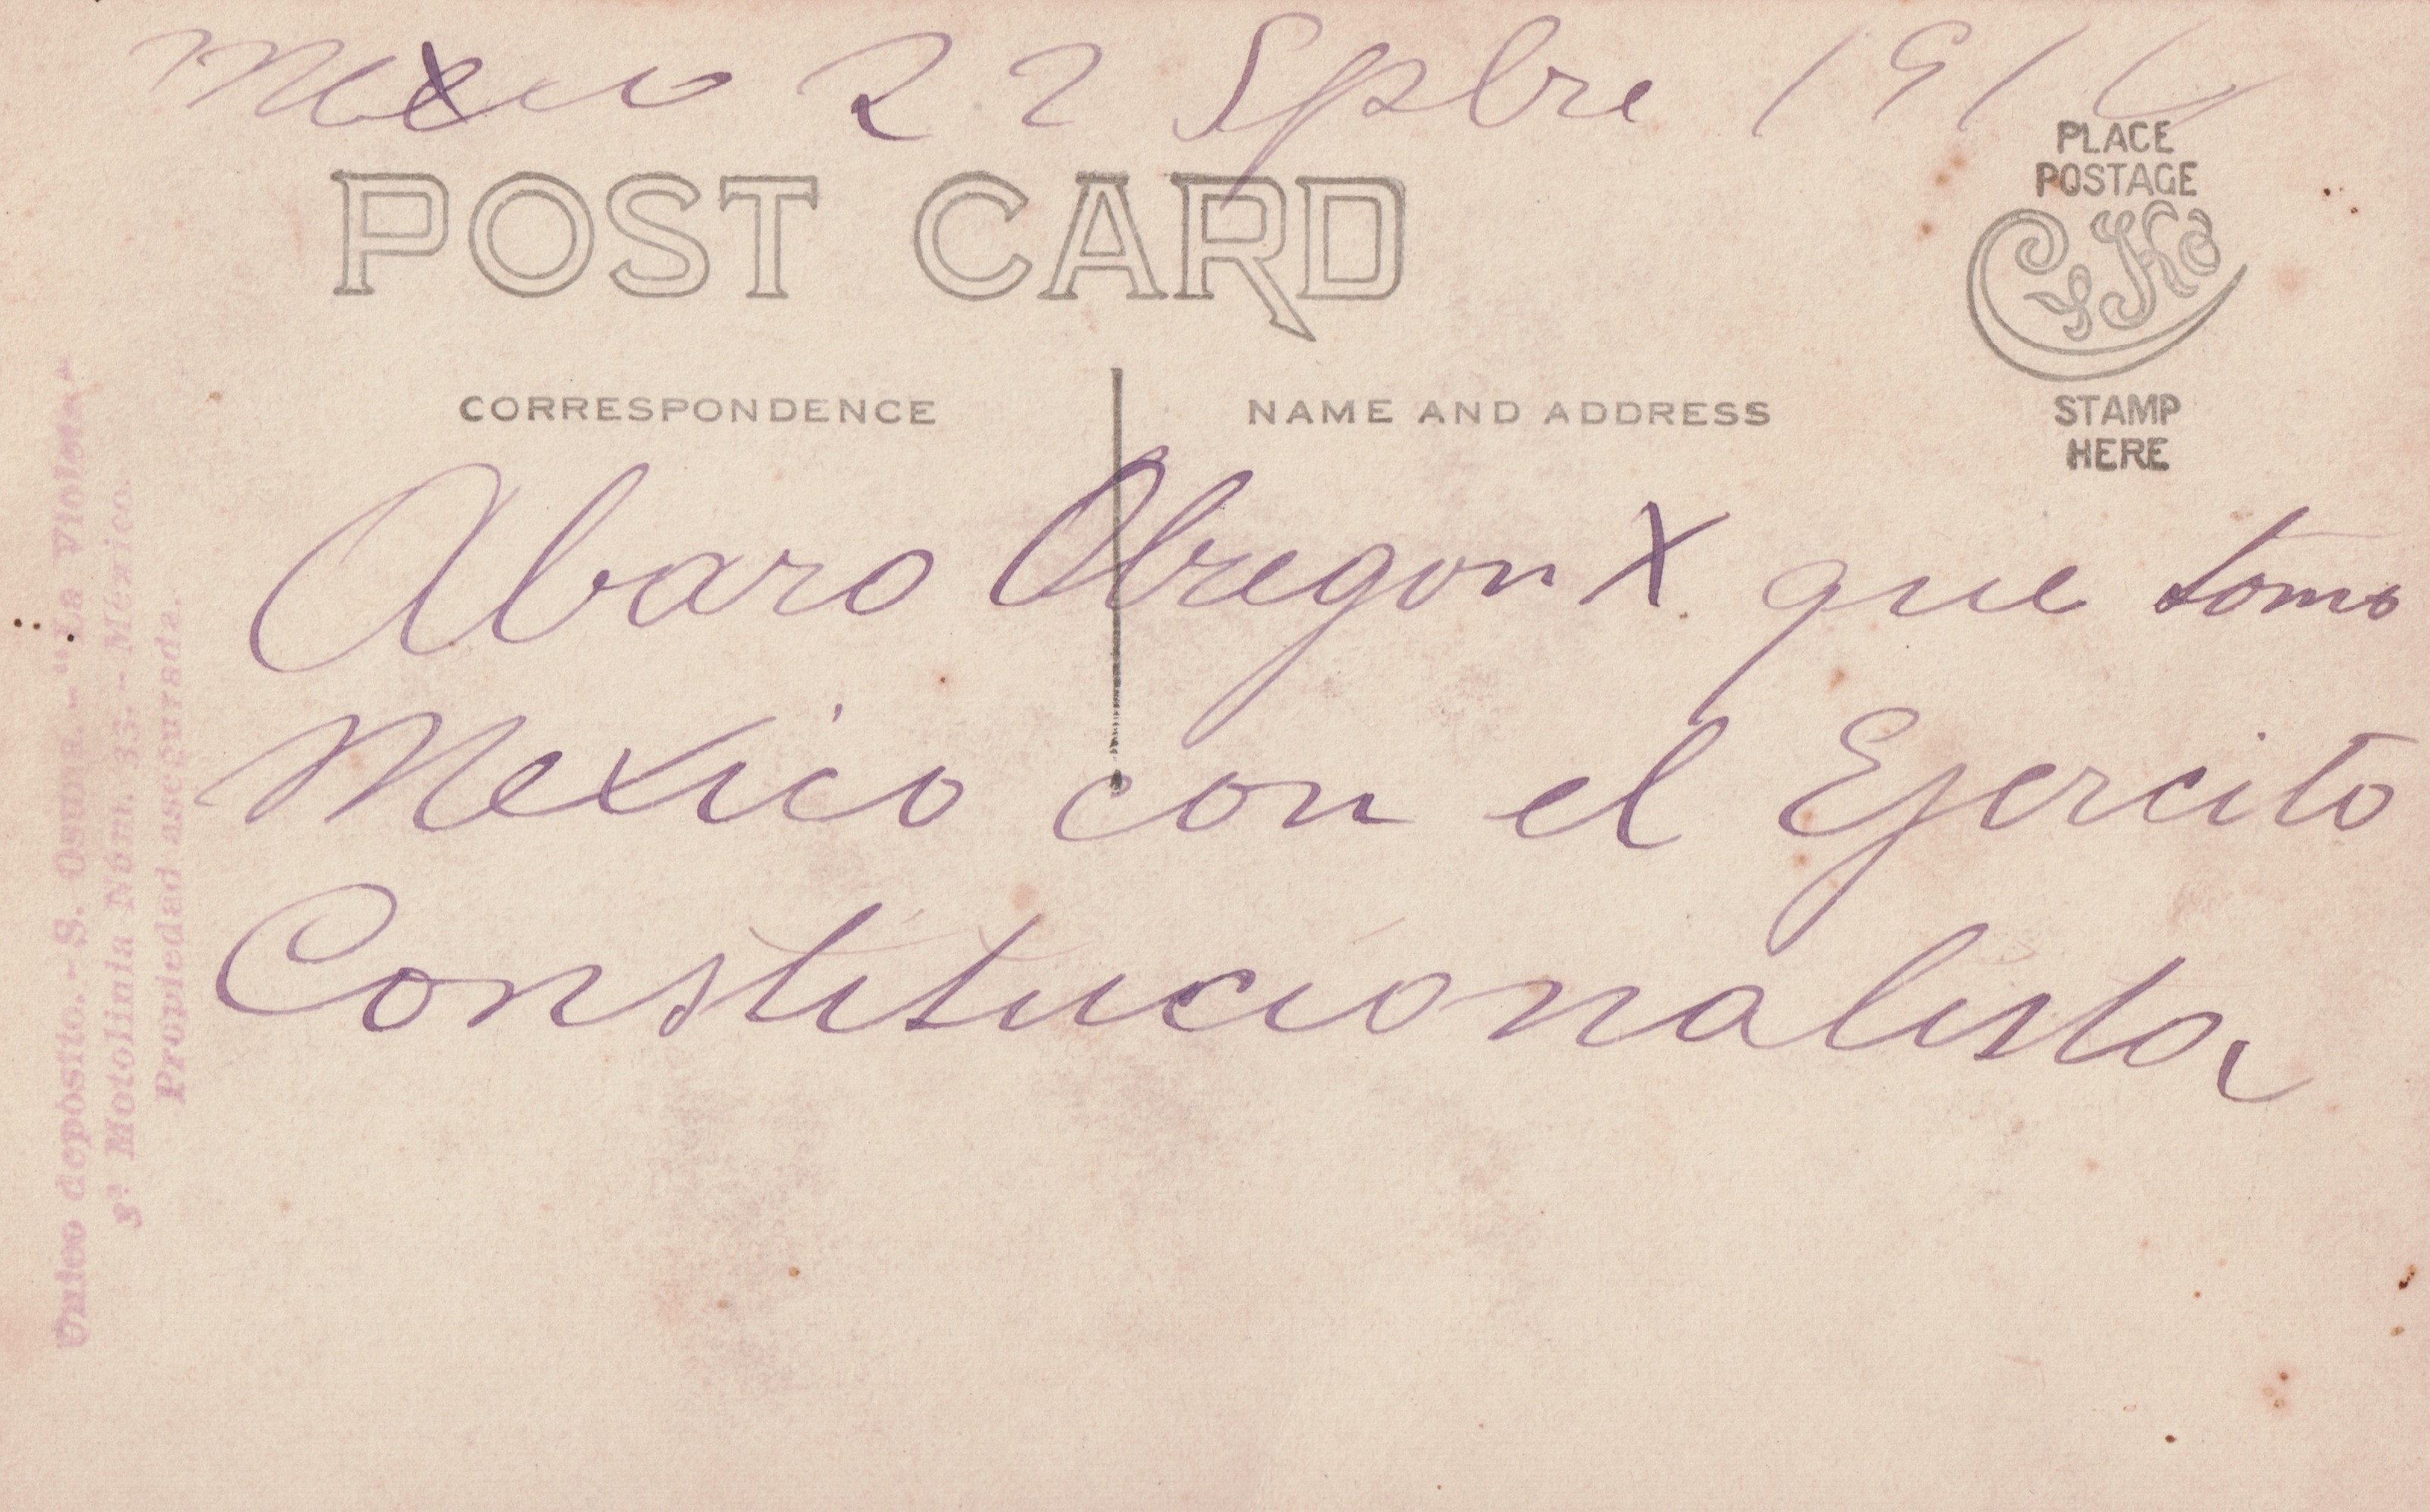 Mexico 22 Spbre 191
POST CARD
PLACE
POSTAGE
STAMP
HERE
CORRESPONDENCE
NAME AND ADDRESS
Abaro Obregon X que tomo
Mexico con el Ejercito
Constitucionalista
Unico depósito.-S. Osuna.-"La Violeta"
3ª Motolinia Núm. 33.-México.
Propiedad asegurada.